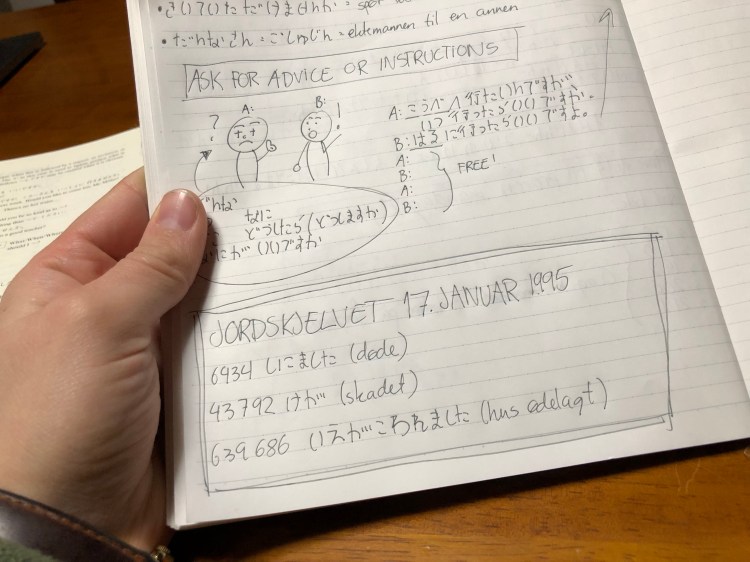 ・だんなさん = ごしゅじん = ektemannen til en annen
ASK FOR ADVICE OR INSTRUCTIONS
A: B:
? !
A: こうべへ行たいんですが
いつ行ったらいいですか。
B: はるに行ったらいいですよ。
A:
B:
A:
B:
FREE!
んな
なに
どうしたら (どうしますか)
にがいいですか
JORDSKJELVET 17. JANUAR 1995
6434 しにました (døde)
43792 けが (skadet)
639686 いえがこわれました (hus ødelagt)